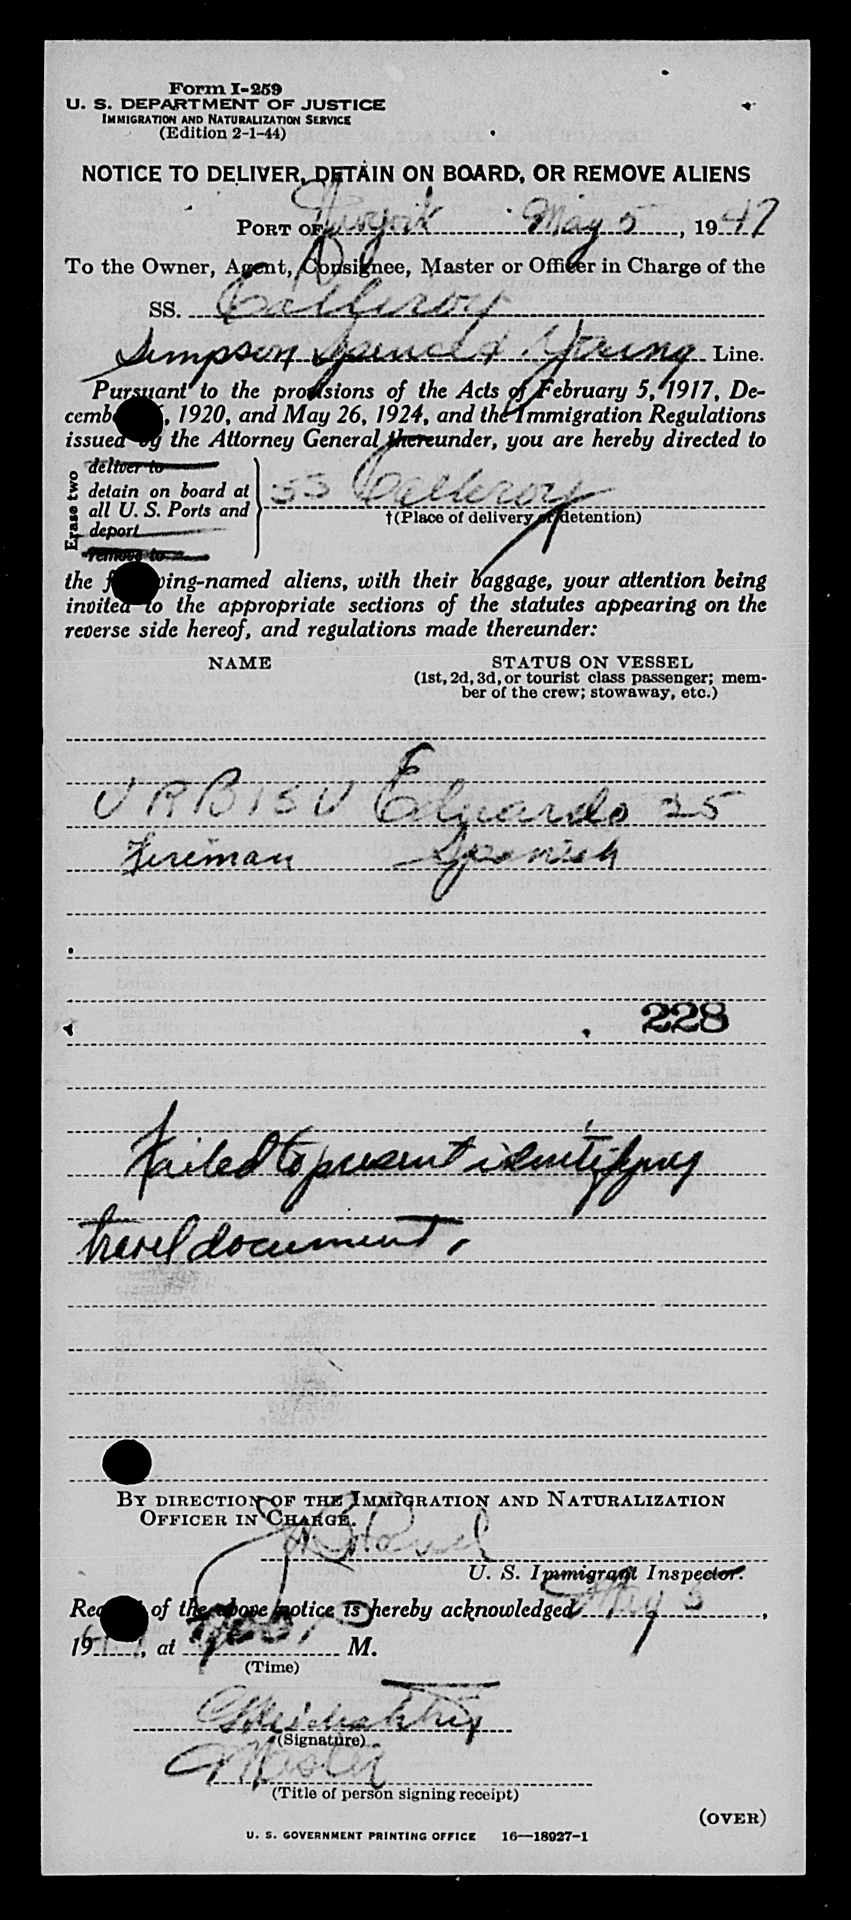 Form I-259
U. S. DEPARTMENT OF JUSTICE
IMMIGRATION AND NATURALIZATION SERVICE
(Edition 2-1-44)
NOTICE TO DELIVER, DETAIN ON BOARD, OR REMOVE ALIENS
PORT OF New York May 5, 1947
To the Owner, Agent, Consignee, Master or Officer in Charge of the
SS. Calleroy
Simpson Spence & Young Line.
Pursuant to the provisions of the Acts of February 5, 1917, De-
cemb , 1920, and May 26, 1924, and the Immigration Regulations
issued by the Attorney General thereunder, you are hereby directed to
Erase two
deliver to
detain on board at
all U. S. Ports and
deport
remove to
SS Calleroy
†(Place of delivery or detention)
the following-named aliens, with their baggage, your attention being
invited to the appropriate sections of the statutes appearing on the
reverse side hereof, and regulations made thereunder:
NAME STATUS ON VESSEL
(1st, 2d, 3d, or tourist class passenger; mem-
ber of the crew; stowaway, etc.)
URBISU Eduardo 35
Fireman Spanish
228
Failed to present identifying
travel document.
BY DIRECTION OF THE IMMIGRATION AND NATURALIZATION
OFFICER IN CHARGE.
U. S. Immigrant Inspector.
Receipt of the above notice is hereby acknowledged May 5,
19 , at M.
(Time)
(Signature)
Master
(Title of person signing receipt)
(OVER)
U. S. GOVERNMENT PRINTING OFFICE 16—18927-1